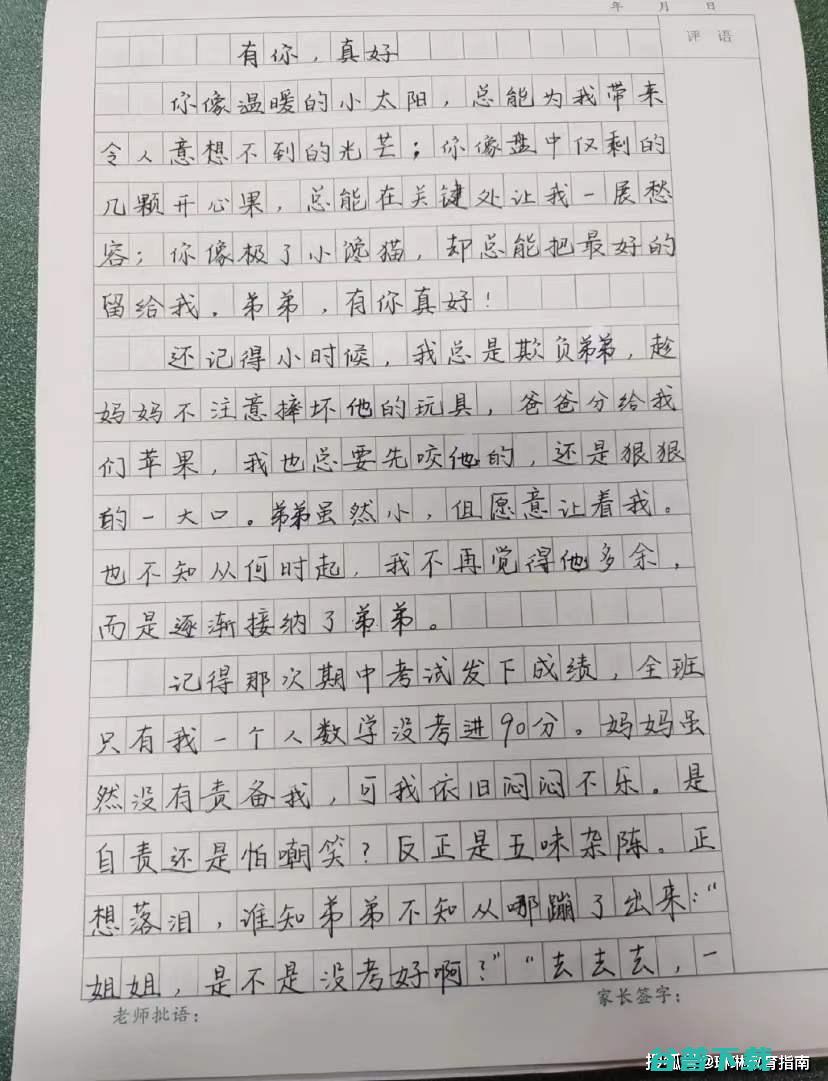 年 月 日
评 语
有你，真好
你像温暖的小太阳，总能为我带来
令人意想不到的光芒；你像盘中仅剩的
几颗开心果，总能在关键处让我一展愁
容；你像极了小馋猫，却总能把最好的
留给我。弟弟，有你真好！
还记得小时候，我总是欺负弟弟，趁
妈妈不注意摔坏他的玩具，爸爸分给我
们苹果，我也总要先咬他的，还是狠狠
的一大口。弟弟虽然小，但愿意让着我。
也不知从何时起，我不再觉得他多余，
而是逐渐接纳了弟弟。
记得那次期中考试发下成绩，全班
只有我一个人数学没考进90分。妈妈虽
然没有责备我，可我依旧闷闷不乐。是
自责还是怕嘲笑？反正是五味杂陈。正
想落泪，谁知弟弟不知从哪蹦了出来：“
姐姐，是不是没考好啊？”“去去去，一
老师批语：
家长签字：
教育指南